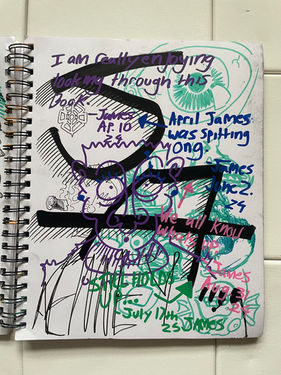 I am really enjoying
looking through this
book.
—James
Ap. 10
24
April James
was spitting
ong.
—James
June 2.
24
We all know
James
Aug 3
24
STILL HOLDS
true
—July 17th
25 JAMES